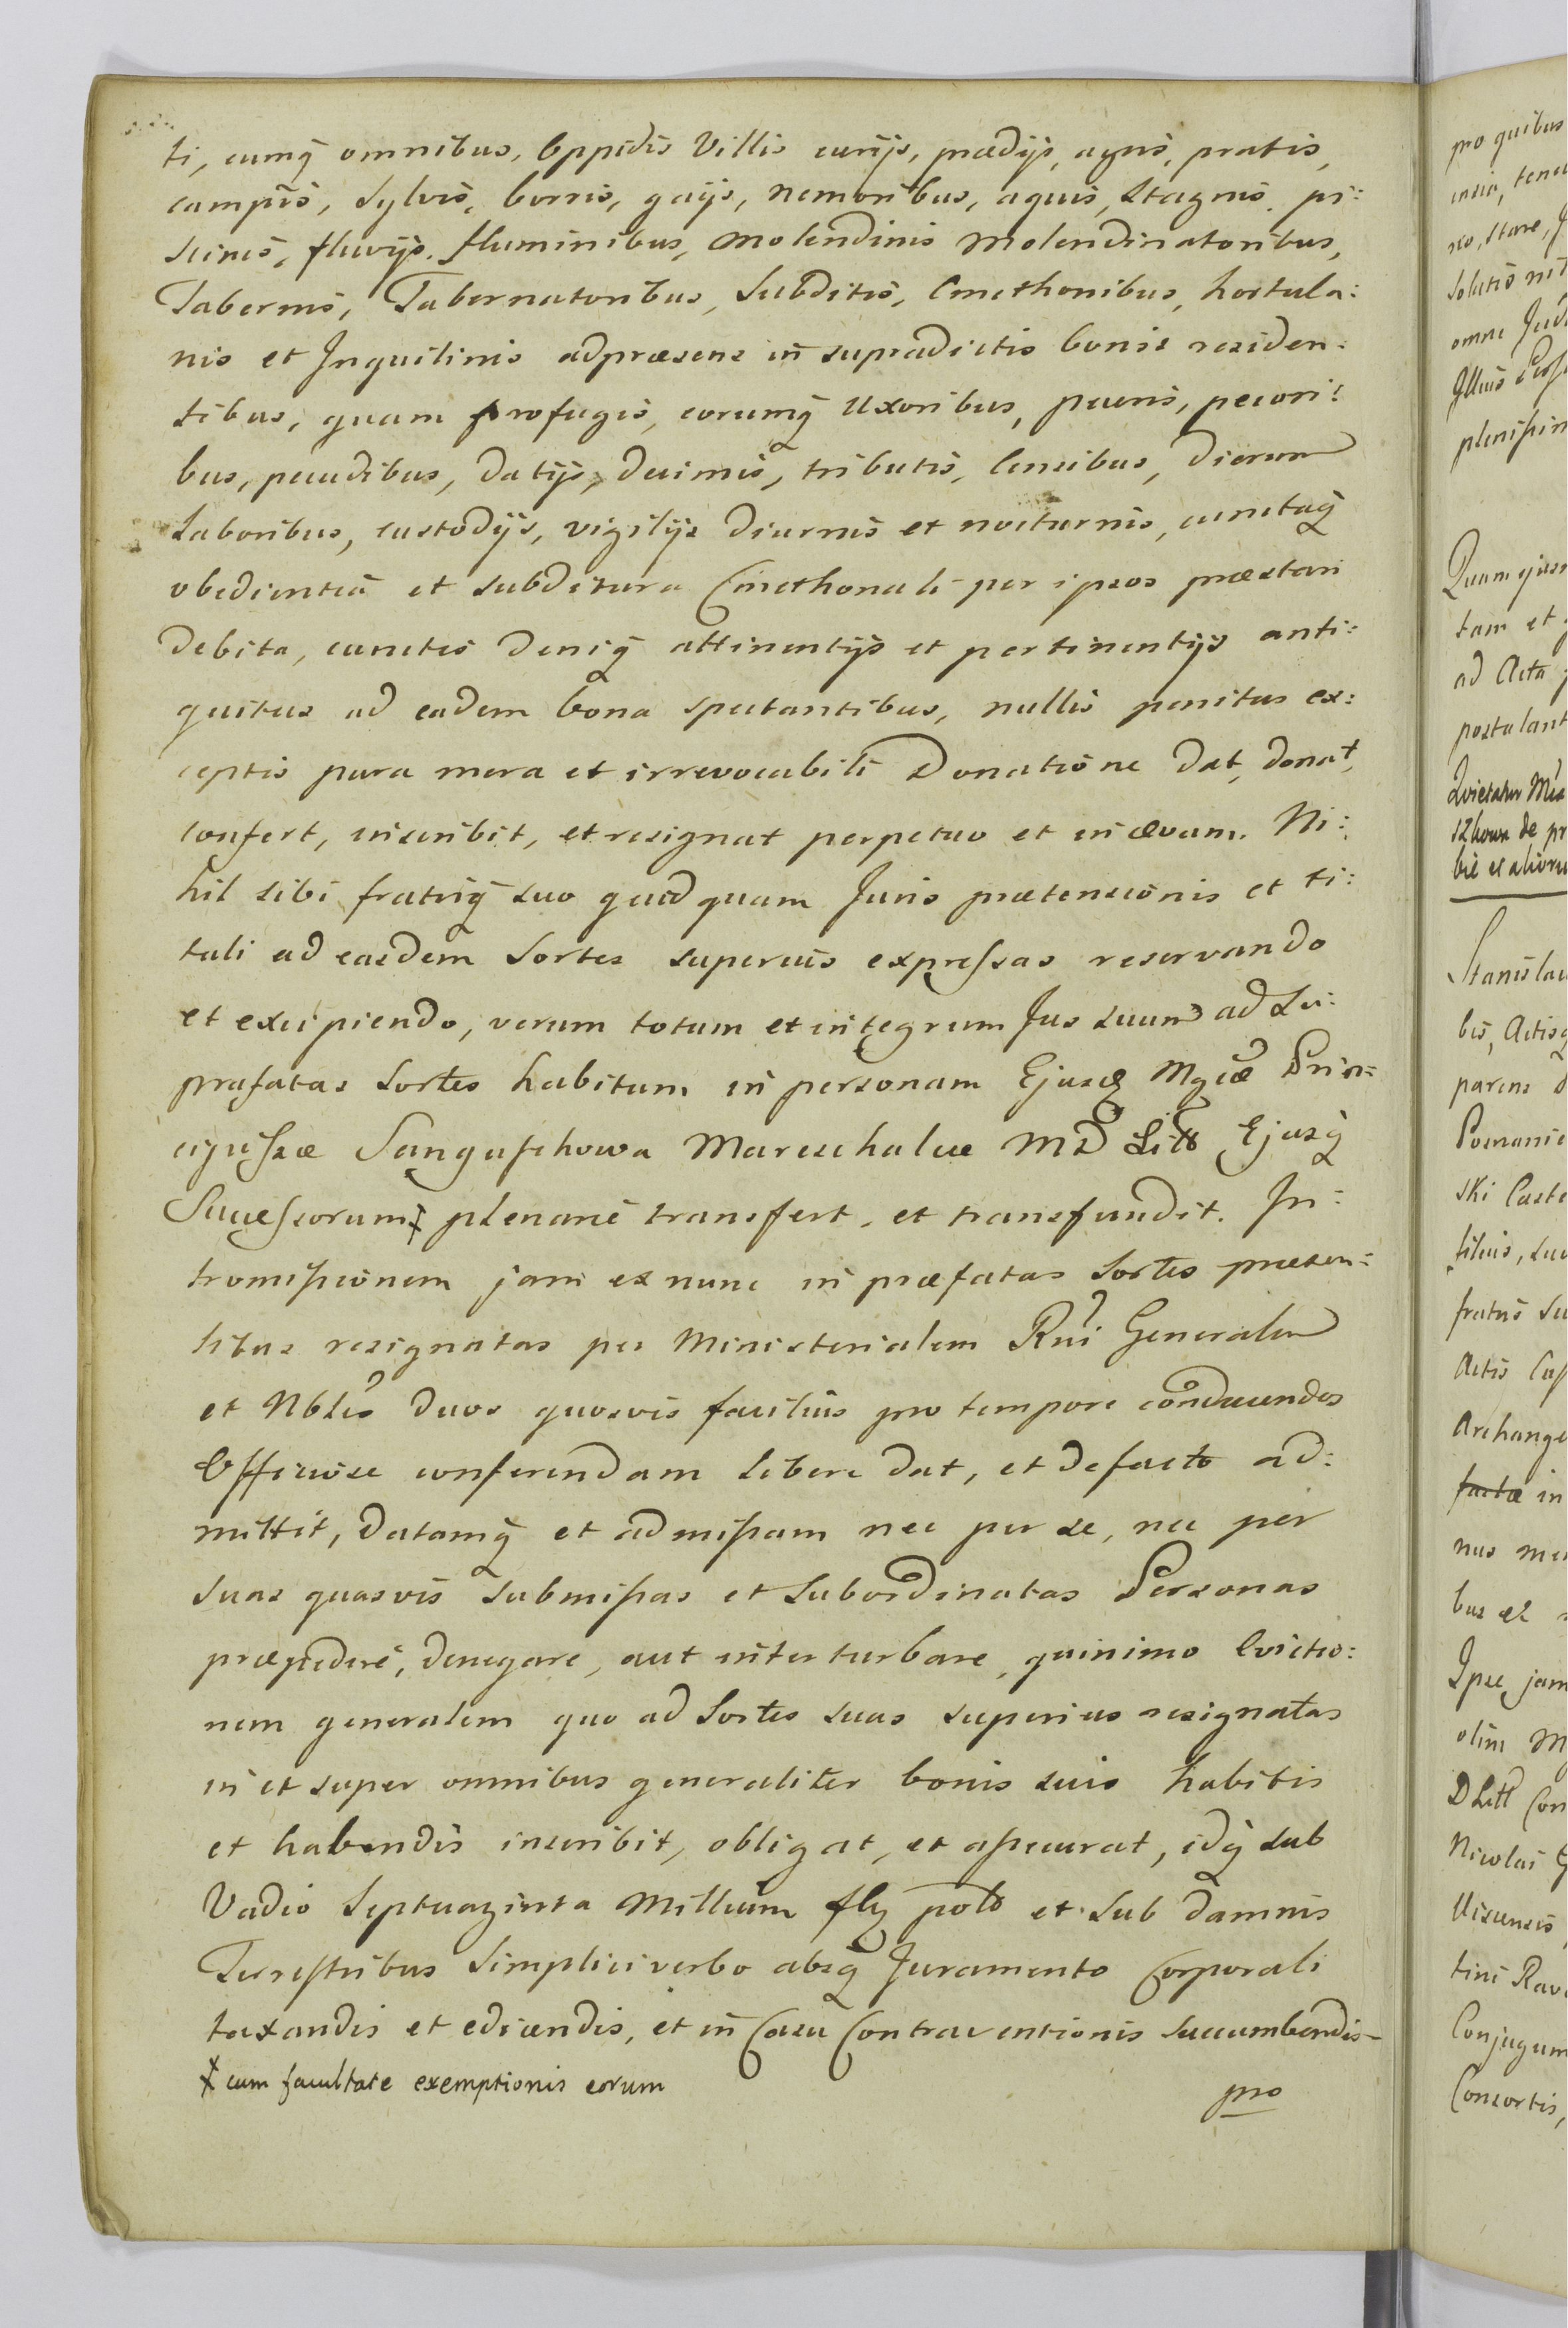 ti, cumq̃ omnibus, Oppidis Villis curijs, prædijs, agris, pratis,
campis, Sylvis, borris, gaijs, nemoribus, aquis, Stagnis, pi:
scinis, fluvijs, fluminibus, molendinis Molendinatoribus,
Tabernis, Tabernatoribus, Subditis, Cmethonibus, hortula:
nis et Inquilinis adpræsens in supradictis bonis residen:
tibus, quam profugis, eorumq̃ Uxoribus, pueris, pecori:
bus, pecudibus, datijs, decimis, tributis, Censibus, dierum
Laboribus, custodijs, vigilijs diurnis et nocturnis, cunctaq̃
obedientia et subditura Cmethonali per ipsos præstari
debita, cunctis deniq̃ attinentijs et pertinentijs anti:
quitus ad eadem bona spectantibus, nullis penitus ex:
ceptis pura mera et irrevocabili Donatione dat, donat,
confert, inscribit, et resignat perpetuo et in ævum. Ni:
hil sibi fratriq̃ suo quidquam Juris prætensionis et ti:
tuli ad easdem Sortes superius expressas reservando
et excipiendo, verum totum et integrum Jus suum ad Su:
prafatas Sortes habitum in personam Ejusq̃ Mgcæ Prin:
cipissæ Sanguschowa Mareschalcæ MD Litt Ejusq̃
Successorum ⚹ plenarie transfert, et transfundit. In:
tromissionem jam ex nunc in præfatas Sortes præsen:
tibus resignatas per Ministerialem Rni Generalem
et Nbles duos quosvis facilius pro tempore conducendos
Officiose conferendam libere dat, et defacto ad:
mittit, datamq̃ et admissam nec per se, nec per
suas quasvis submissas et Subordinatas Personas
præpedire, denegare, aut interturbare, quinimo Evictio:
nem generalem quo ad Sortes suas superius resignatas
in et super omnibus generaliter bonis suis habitis
et habendis inscribit, obligat, et assecurat, idq̃ sub
Vadio Septuaginta Millium flɣ polo et sub damnis
Terrestribus Simplici verbo absq̃ Juramento Corporali
taxandis et edicendis, et in Casu Contraventionis succumbendis
⚹ cum facultate exemptionis eorum
pro
pro quibus
omne
plenissim
tam et
ad Acta
postulant
bie et alioru
Stanislau
bis, Actisq
parens
Posnanie
ski Caste
filius, suo
fratris su
Actis Cas
Archange
factæ in
nus me
bus et
Ipse jam
olim M
D Litt Con
Nicolai
tini Rava
Conjugum
Consortis,